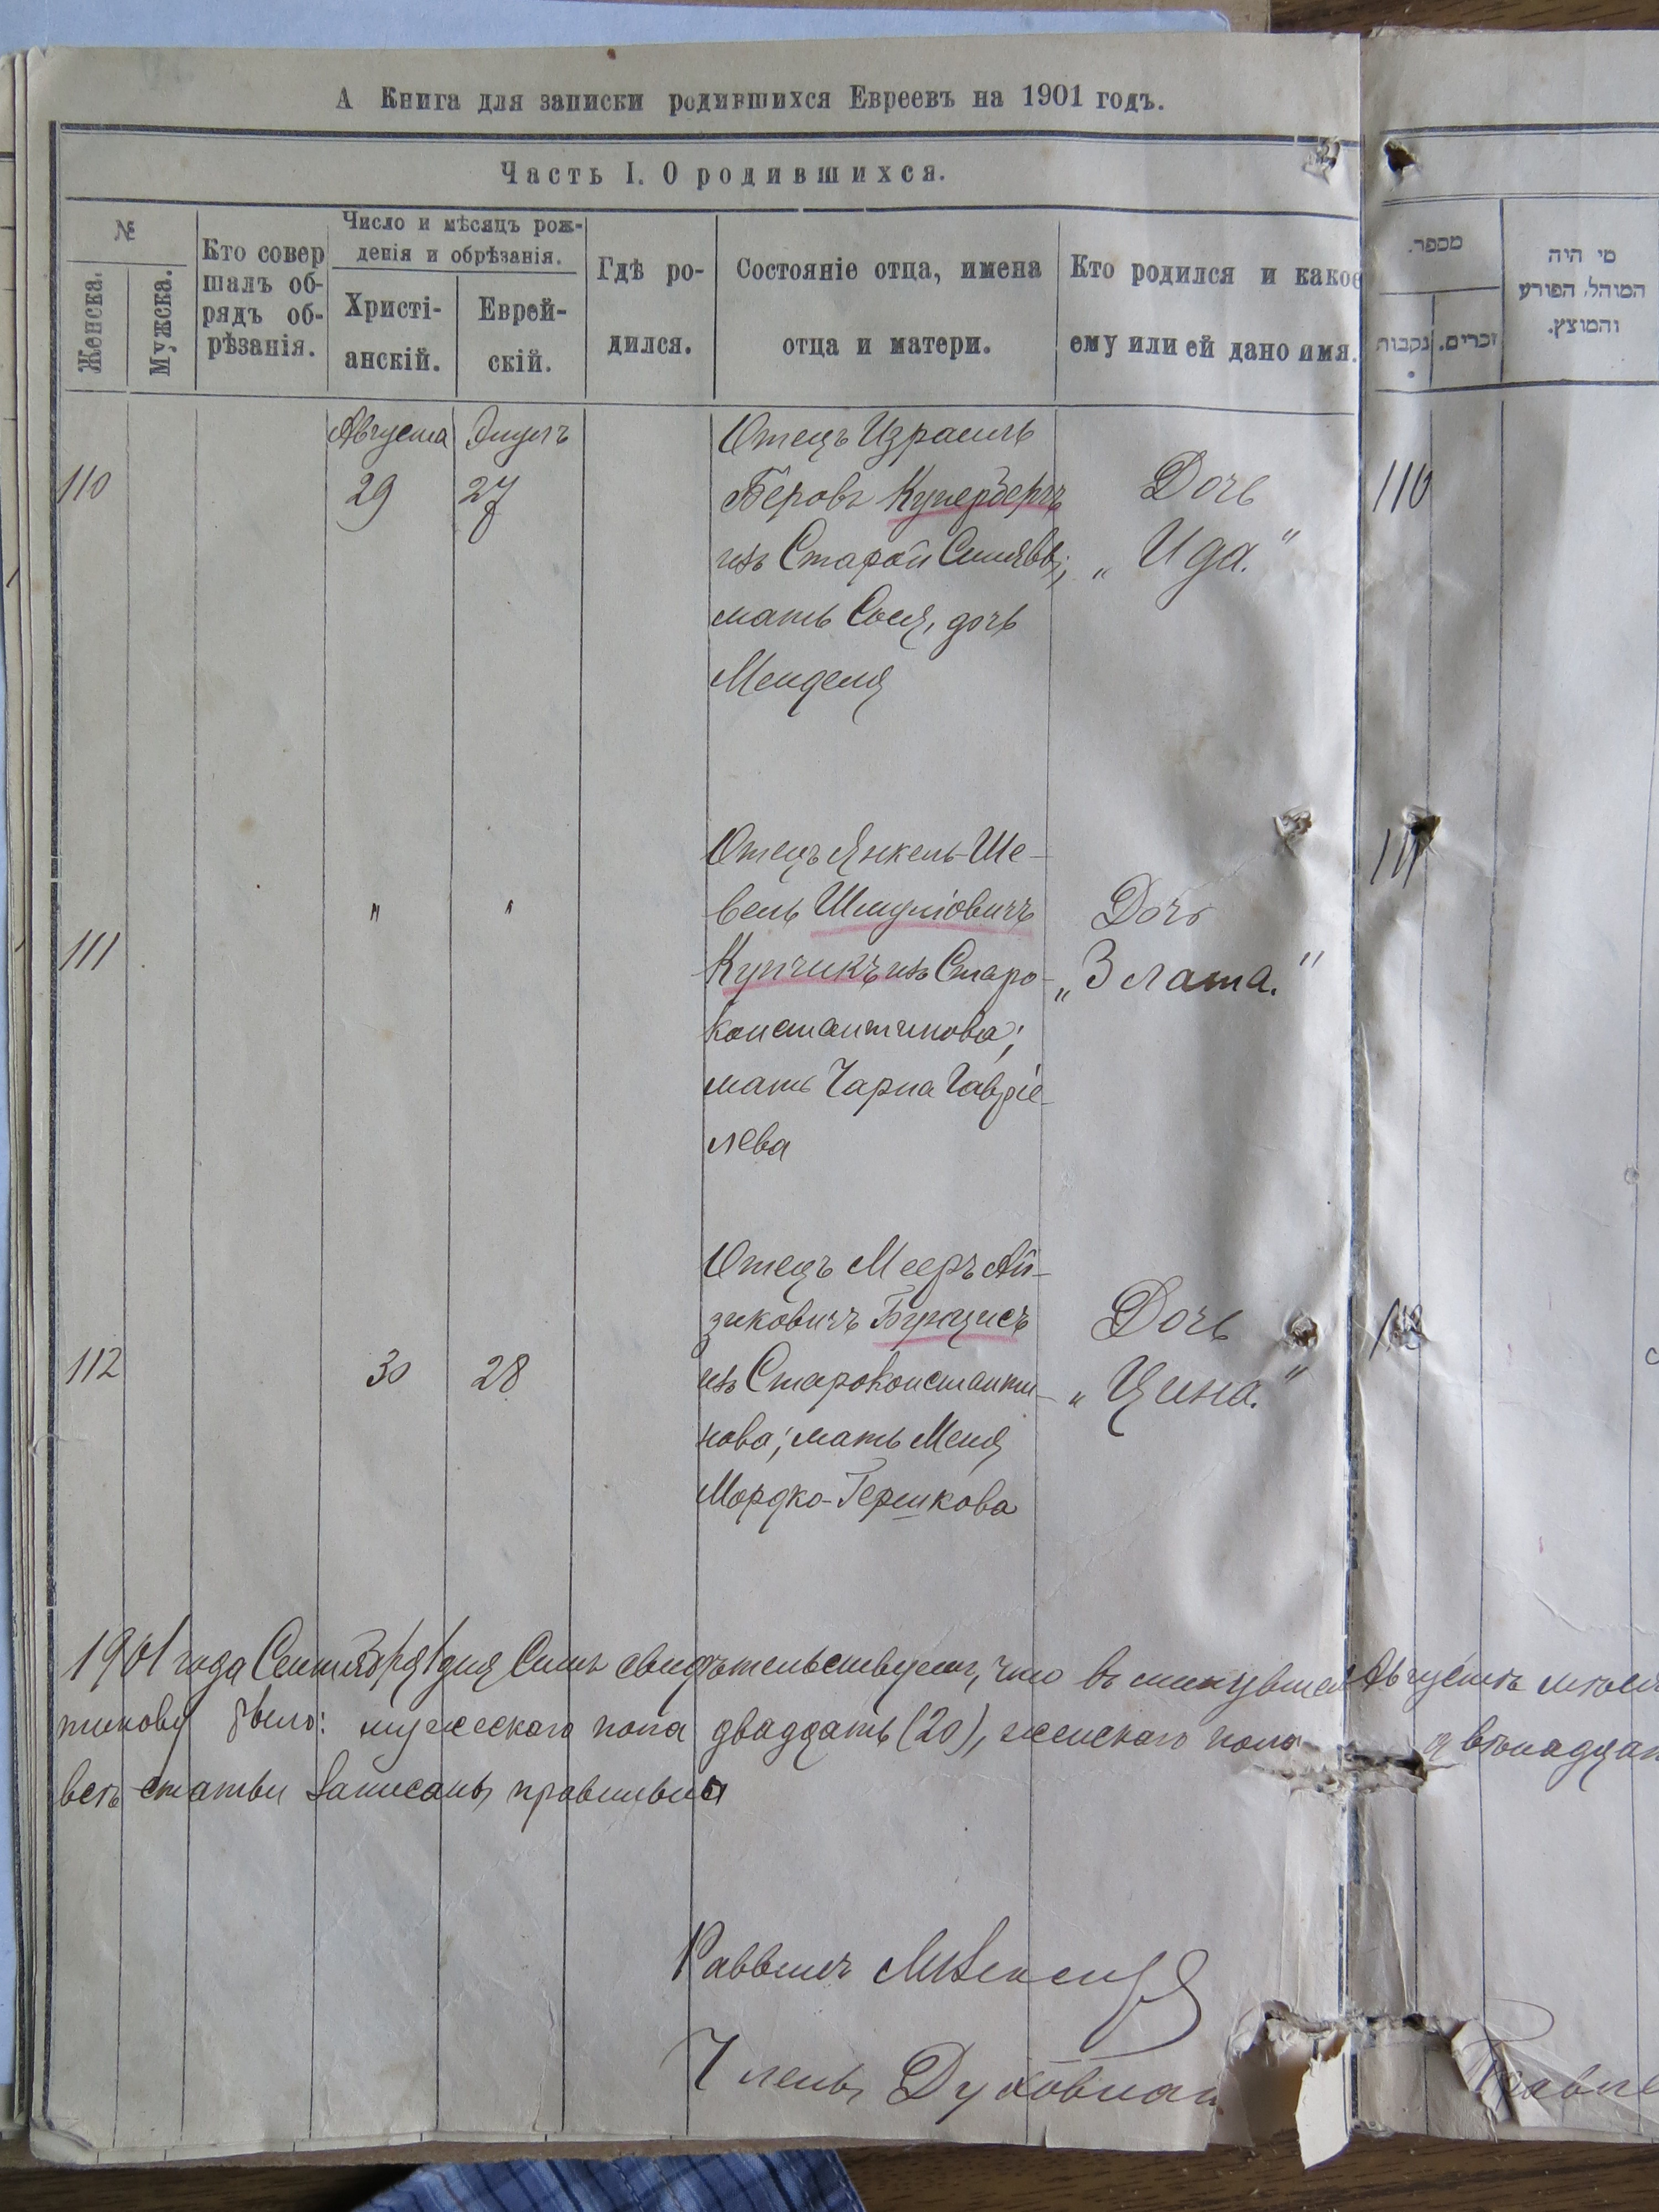 А Книга для записки родившихся Евреевъ на 1901 годъ.
Часть I. О родившихся.
№
Женска.
Мужска.
Кто совер
шалъ об-
рядъ об-
рѣзанія.
Число и мѣсяцъ рож-
денія и обрѣзанія.
Христі-
анскій.
Еврей-
скій.
Гдѣ ро-
дился.
Состояніе отца, имена
отца и матери.
Кто родился и какое
ему или ей дано имя.
מספר.
נקבות
זכרים.
מי היה
המוהל, הפורע
והמוצץ.
Августа Элулъ
110 29 27
Отецъ Израиль
Беровъ Купербергъ
изъ Старой Синявы;
мать Сося, дочь
Менделя
Дочь
„Ида."
110
111 " "
Отецъ Янкель-Ше-
вель Шмуліовичъ
Купчикъ изъ Старо-
константинова;
мать Чарна Гавріе-
лева
Дочь
„Злата."
111
112 30 28
Отецъ Мееръ Ай-
зиковичъ
изъ Староконстанти-
нова; мать Меня
Мордко-Гершкова
Дочь
„Цина."
112
1901 года Сентября 1 дня Симъ свидѣтельствуемъ, что въ минувшемъ Августѣ
тинову было: мужескаго пола двадцать (20), женскаго пола
всѣ статьи записаны правильно
Раввинъ
Члены Духовнаго